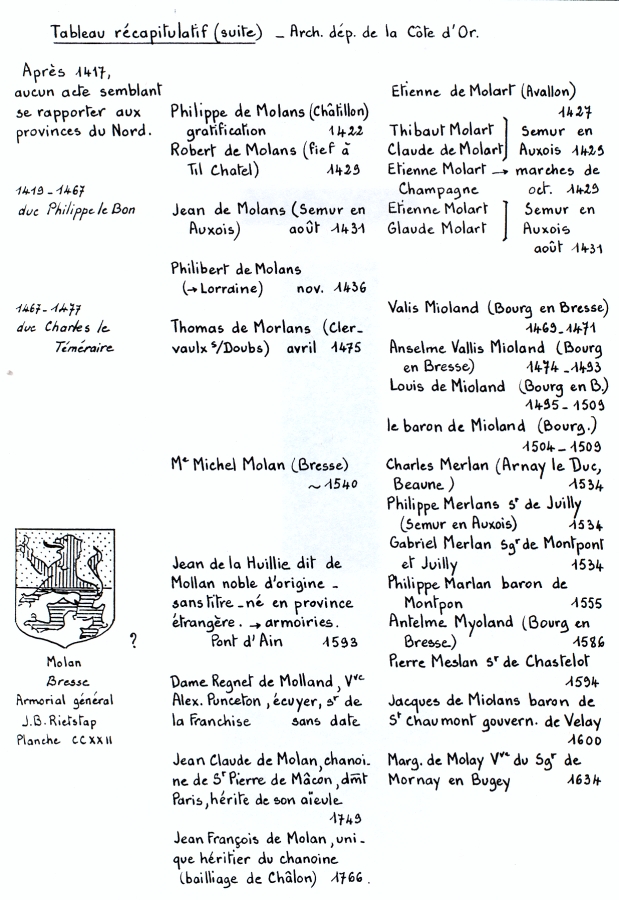 Tableau récapitulatif (suite) _ Arch. dép. de la Côte d'Or.
Après 1417,
aucun acte semblant
se rapporter aux
provinces du Nord.
1419-1467
duc Philippe le Bon
1467-1477
duc Charles le
Téméraire
?
Molan
Bresse
Armorial général
J.B. Rietstap
Planche CCXXII
Philippe de Molans (Châtillon)
gratification 1422
Robert de Molans (fief à
Til Chatel) 1429
Jean de Molans (Semur en
Auxois) août 1431
Philibert de Molans
(→Lorraine) nov. 1436
Thomas de Morlans (Cler_
vaulx s/Doubs) avril 1475
Me Michel Molan (Bresse)
~ 1540
Jean de la Huillie dit de
Mollan noble d'origine _
sans titre _ né en province
étrangère. → armoiries.
Pont d'Ain 1593
Dame Regnet de Molland, Vve
Alex. Punceton, écuyer, sr de
la Franchise sans date
Jean Claude de Molan, chanoi_
ne de St Pierre de Mâcon, dmt
Paris, hérite de son aïeule
1749
Jean François de Molan, uni_
que héritier du chanoine
(bailliage de Châlon) 1766.
Etienne de Molart (Avallon)
1427
Thibaut Molart ] Semur en
Claude de Molart ] Auxois 1429
Etienne Molart → marches de
Champagne oct. 1429
Etienne Molart ] Semur en
Glaude Molart ] Auxois
août 1431
Valis Mioland (Bourg en Bresse)
1469-1471
Anselme Vallis Mioland (Bourg
en Bresse) 1474-1493
Louis de Mioland (Bourg en B.)
1495-1509
le baron de Mioland (Bourg.)
1504-1509
Charles Merlan (Arnay le Duc,
Beaune) 1534
Philippe Merlans sr de Juilly
(Semur en Auxois) 1534
Gabriel Merlan Sgr de Montpont
et Juilly 1534
Philippe Marlan baron de
Montpon 1555
Antelme Myoland (Bourg en
Bresse) 1586
Pierre Meslan sr de Chastelot
1594
Jacques de Miolans baron de
St Chaumont gouvern. de Velay
1600
Marg. de Molay Vve du Sgr de
Mornay en Bugey 1634